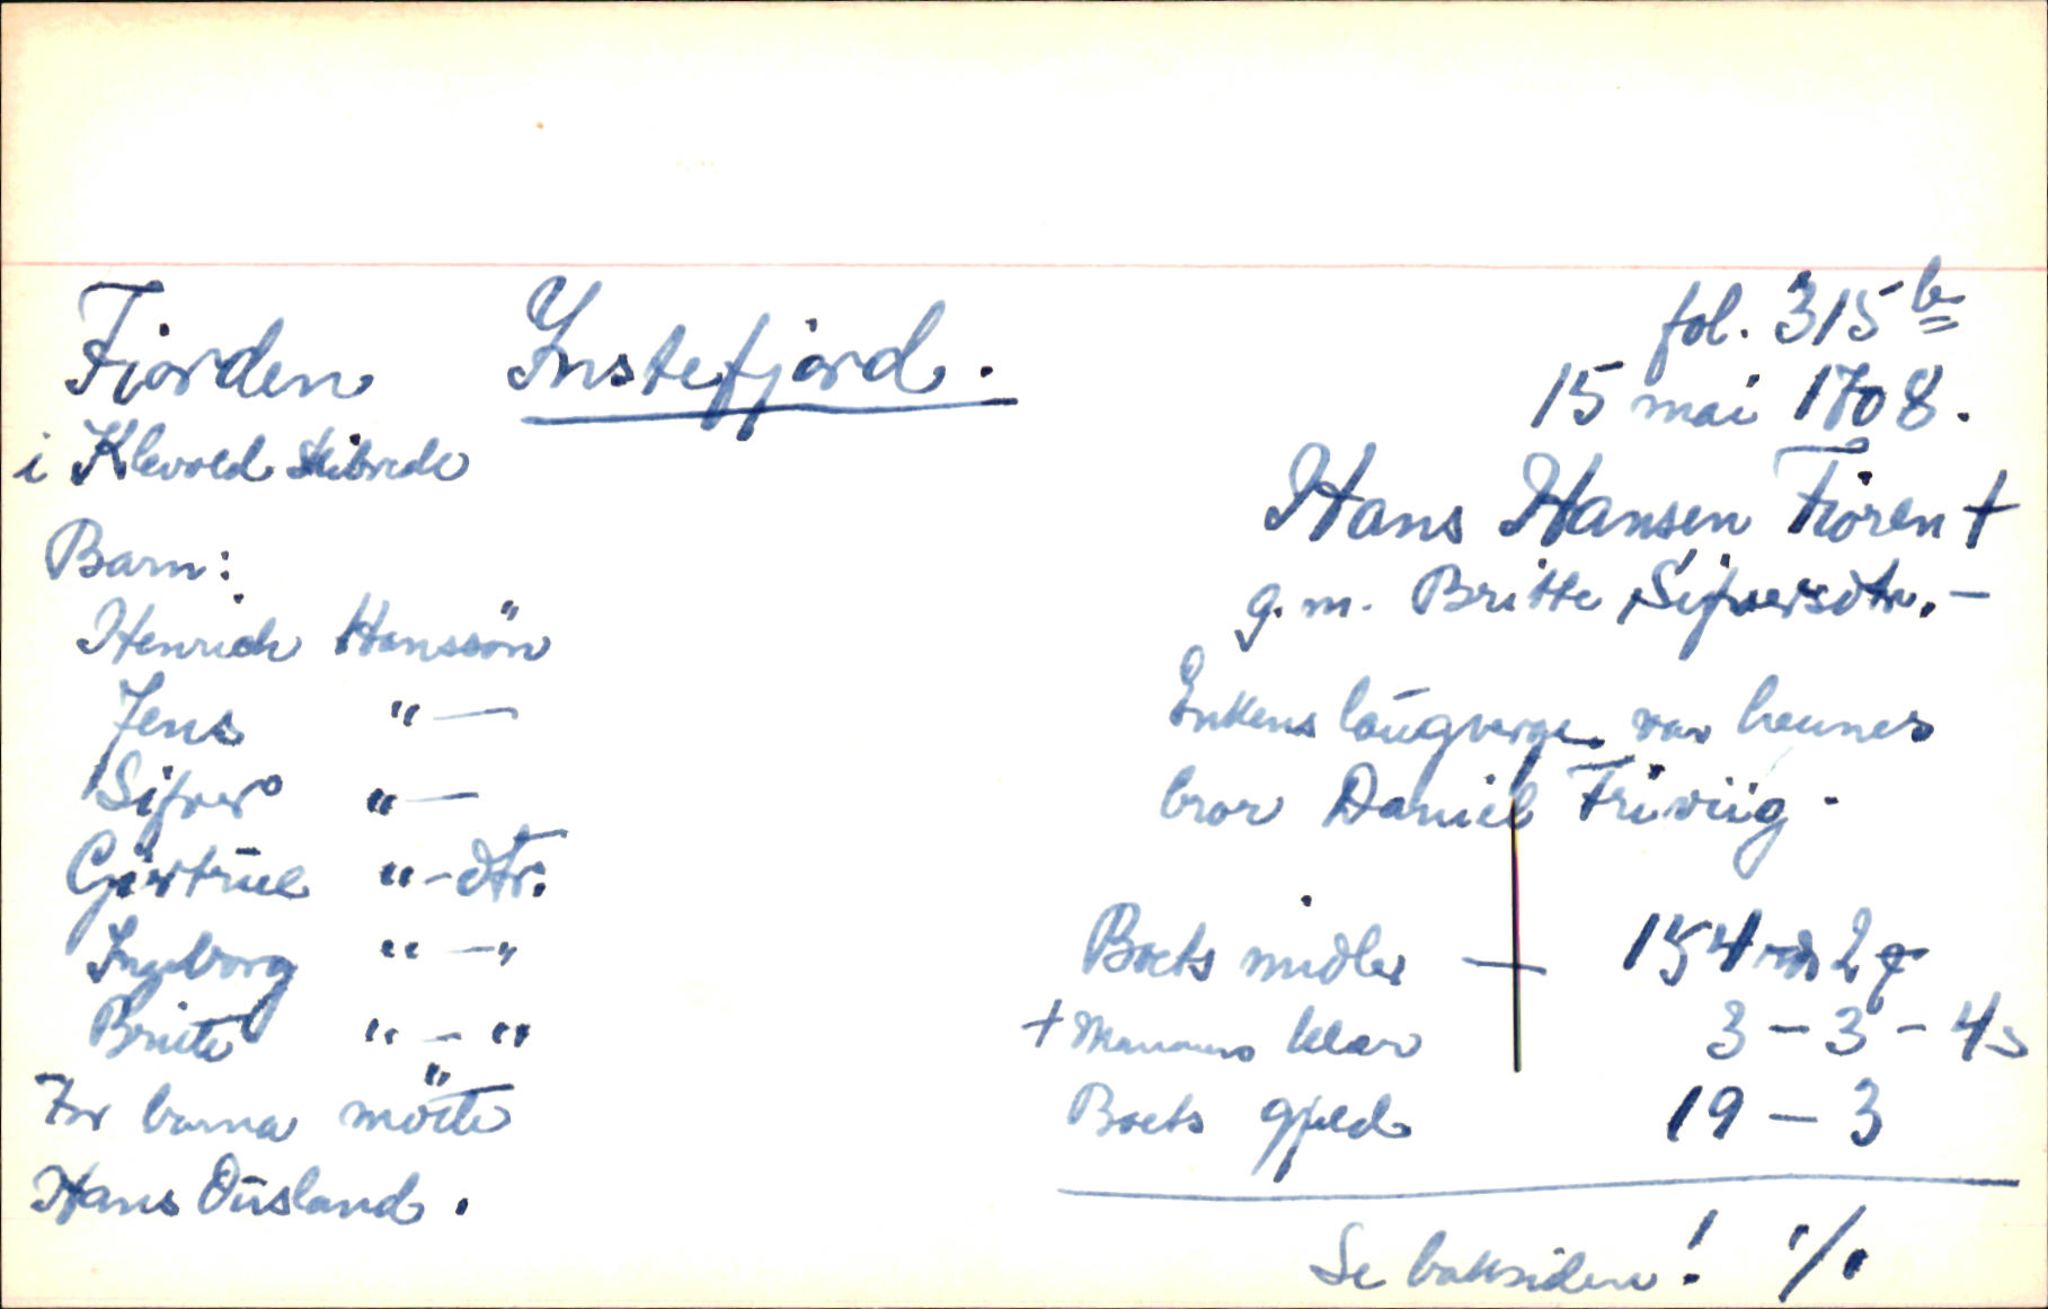 Fiorden Ynstefjord.
i Klevold skibrede
Barn:
Henrich Hanssön
Jens "—
Sifver "—
Giertrue "-dtr.
Ingeborg " —"
Brite " — "
For barna møtte
Hans Ousland.
fol. 315 b
15 mai 1708.
Hans Hansen Fioren †
g. m. Britte Sifversdtr. —
Enkens laugverge var hennes
bror Daniel Friviig.
Boets midler — 154 rd 2 q
+ Mannens klær 3 — 3 — 4 s
Boets gjeld 19 — 3
Se baksiden! ·/·